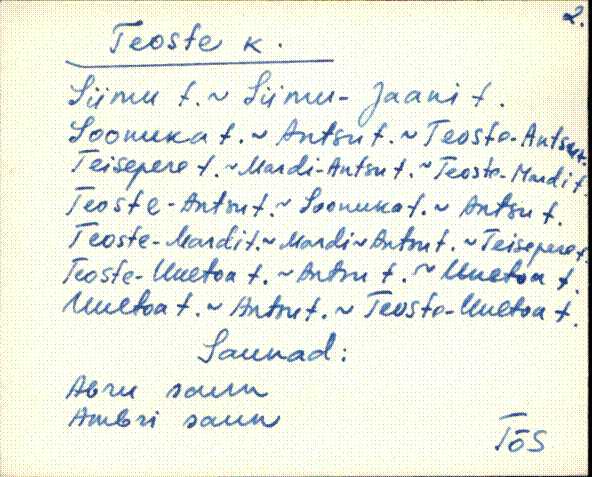 2.
Teoste k.
Siimu t. ~ Siimu-Jaani t.
Soonuka t. ~ Antsu t. ~ Teoste-Antsu t.
Teisepere t. ~ Mardi-Antsu t. ~ Teoste-Mardi t.
Teoste-Antsu t. ~ Soonuka t. ~ Antsu t.
Teoste-Mardi t. ~ Mardi-Antsu t. ~ Teisepere t.
Teoste-Uuetoa t. ~ Antsu t. ~ Uuetoa t.
Uuetoa t. ~ Antsu t. ~ Teoste-Uuetoa t.
Saunad:
Abru saun
Ambri saun
TõS